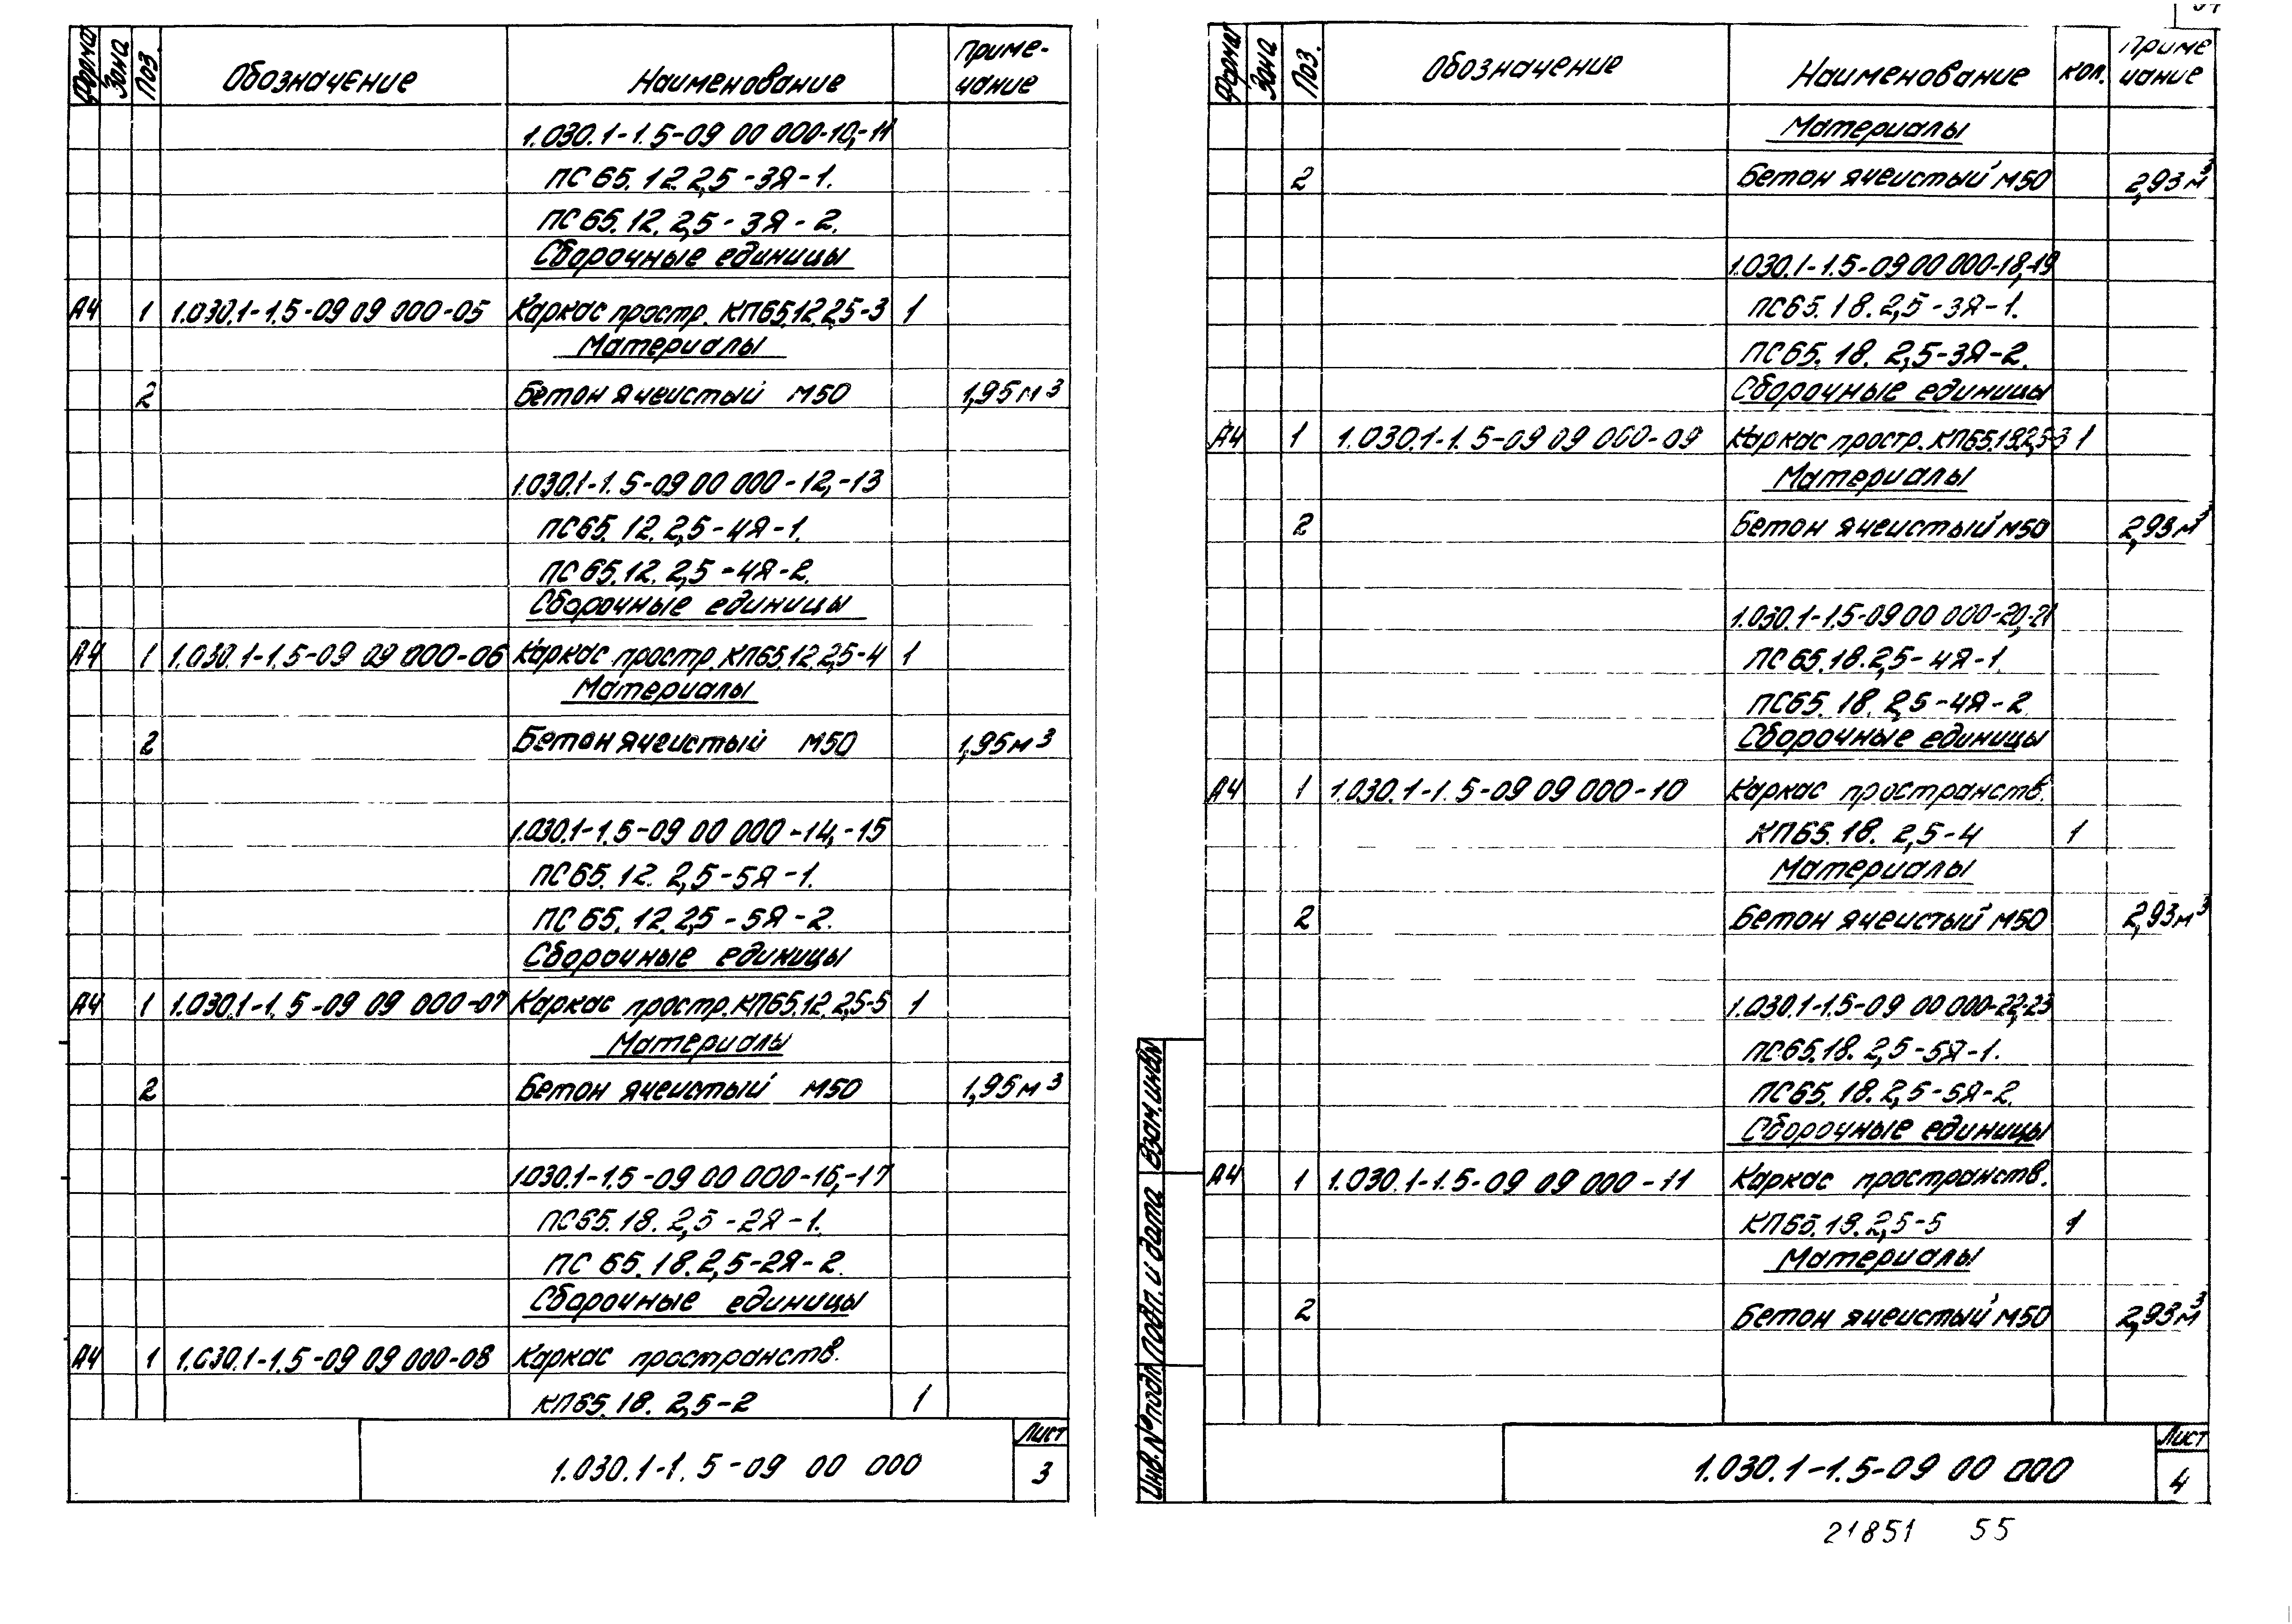 Формат Зона Поз. Обозначение Наименование Приме-
чание
1.030.1-1.5-09 00 000-10,-11
ПС 65.12.2,5-3Я-1.
ПС 65.12.2,5-3Я-2.
Сборочные единицы
А4 1 1.030.1-1.5-09 09 000-05 Каркас простр. КП65.12.2,5-3 1
Материалы
2 Бетон ячеистый М50 1,95 м³
1.030.1-1.5-09 00 000-12,-13
ПС65.12.2,5-4Я-1.
ПС 65.12.2,5-4Я-2.
Сборочные единицы
А4 1 1.030.1-1.5-09 09 000-06 Каркас простр. КП65.12.2,5-4 1
Материалы
2 Бетон ячеистый М50 1,95 м³
1.030.1-1.5-09 00 000-14,-15
ПС65.12.2,5-5Я-1.
ПС 65.12.2,5-5Я-2.
Сборочные единицы
А4 1 1.030.1-1.5-09 09 000-07 Каркас простр. КП65.12.2,5-5 1
Материалы
2 Бетон ячеистый М50 1,95 м³
1.030.1-1.5-09 00 000-16,-17
ПС65.18.2,5-2Я-1.
ПС 65.18.2,5-2Я-2.
Сборочные единицы
А4 1 1.030.1-1.5-09 09 000-08 Каркас пространств.
КП65.18.2,5-2 1
1.030.1-1.5-09 00 000
Лист
3
Формат Зона Поз. Обозначение Наименование кол. Приме
чание
Материалы
2 Бетон ячеистый М50 2,93 м³
1.030.1-1.5-09 00 000-18,-19
ПС65.18.2,5-3Я-1.
ПС65.18.2,5-3Я-2.
Сборочные единицы
А4 1 1.030.1-1.5-09 09 000-09 Каркас простр. КП65.18.2,5-3 1
Материалы
2 Бетон ячеистый М50 2,93 м³
1.030.1-1.5-09 00 000-20,-21
ПС 65.18.2,5-4Я-1.
ПС65.18.2,5-4Я-2.
Сборочные единицы
А4 1 1.030.1-1.5-09 09 000-10 Каркас пространств.
КП65.18.2,5-4 1
Материалы
2 Бетон ячеистый М50 2,93 м³
1.030.1-1.5-09 00 000-22,-23
ПС65.18.2,5-5Я-1.
ПС65.18.2,5-5Я-2.
Сборочные единицы
А4 1 1.030.1-1.5-09 09 000-11 Каркас пространств.
КП65.18.2,5-5 1
Материалы
2 Бетон ячеистый М50 2,93 м³
Взам.инв№
Подп. и дата
Инв.№подл.
1.030.1-1.5-09 00 000
Лист
4
21851 55